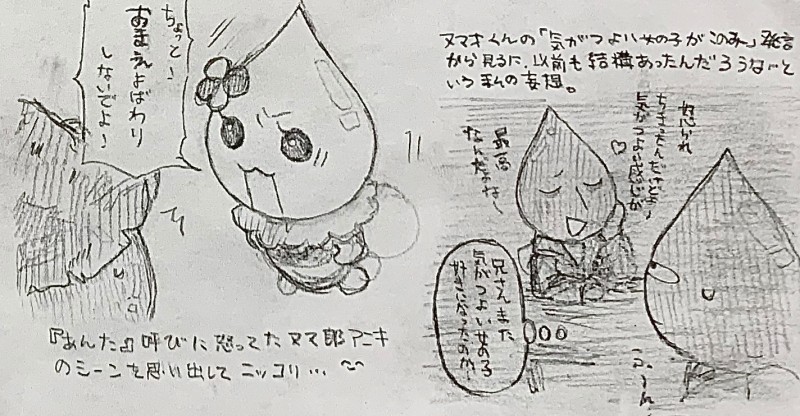 ちょっと!
おまえよばわり
しないでよ!
『あんた』呼びに怒ってたヌマ郎アニキ
のシーンを思い出してニッコリ…
ヌマオくんの「気がつよい女の子がこのみ」発言
から見るに、以前も結構あったんだろうな…と
いう私の妄想。
ちまったんだけどよ
気がつよい感じが♡
最高
なんだよな〜
兄さんまた
気がつよい女の子
好きになったのか…
ふーん